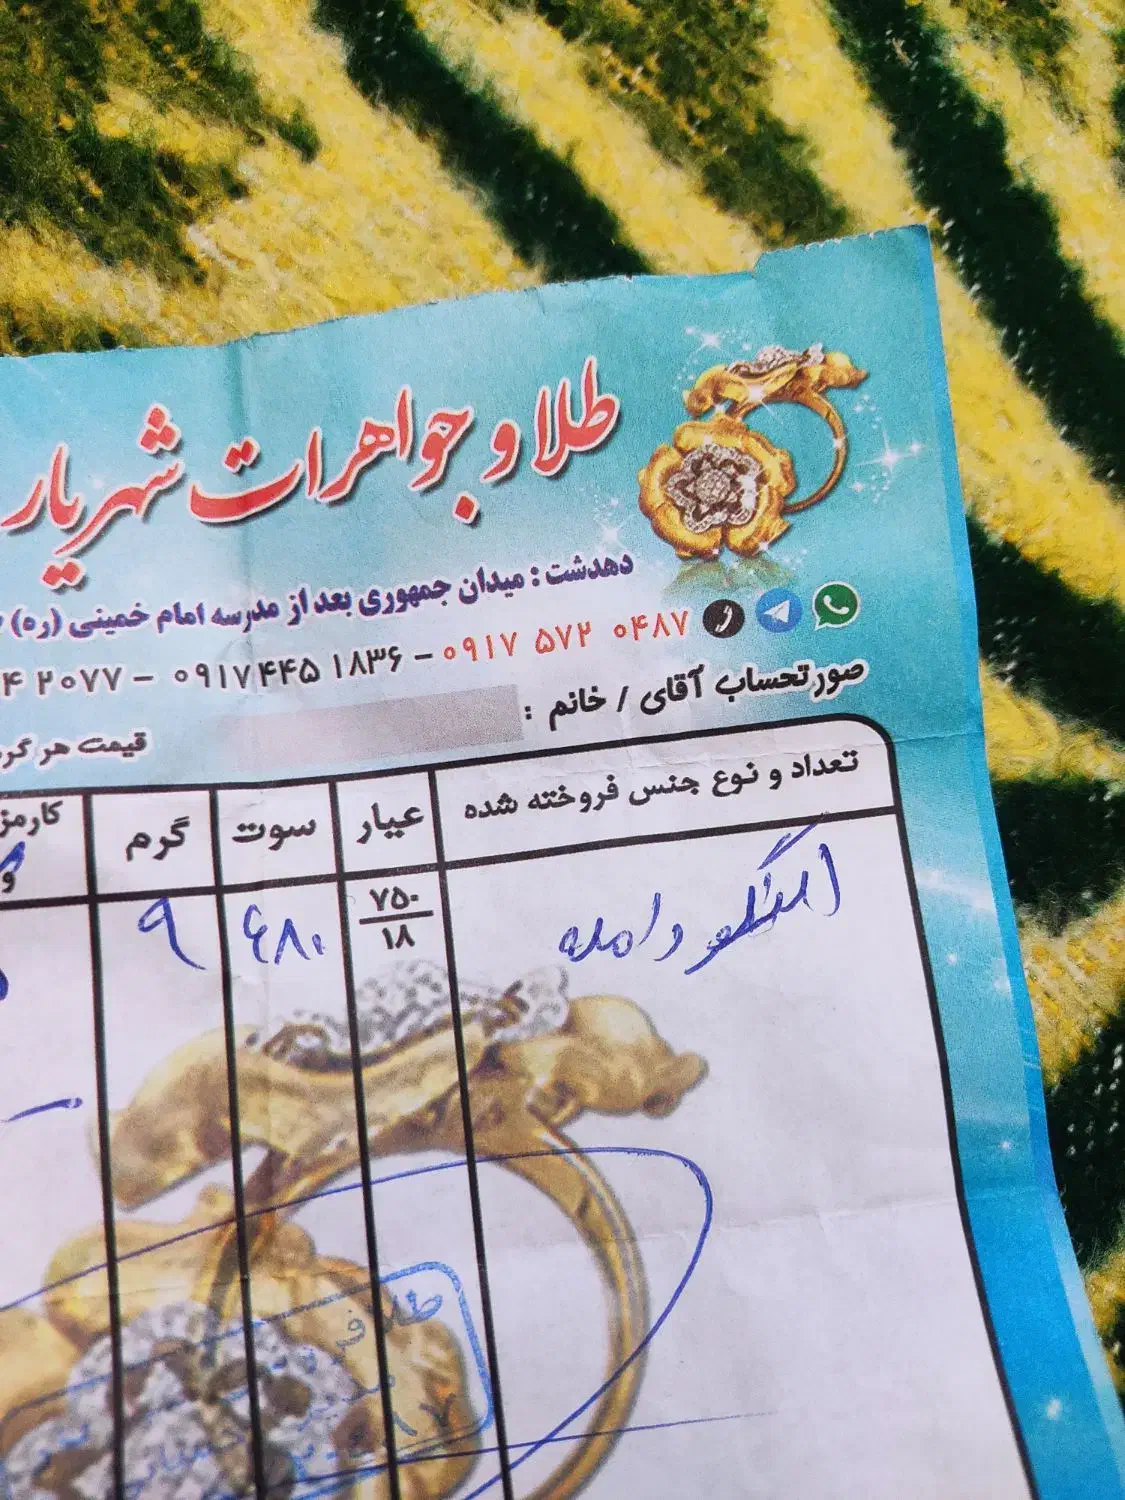 طلا و جواهرات شهریار
دهدشت : میدان جمهوری بعد از مدرسه امام خمینی (ره)
۰۹۱۷ ۵۷۲ ۰۴۸۷ - ۰۹۱۷۴۴۵ ۱۸۳۶ - ۴ ۲۰۷۷
صورتحساب آقای / خانم :
قیمت هر گرم
تعداد و نوع جنس فروخته شده عیار سوت گرم کارمز
النگو دامله ۷۵۰/۱۸ ۶۸۰ ۹
طلا فرو